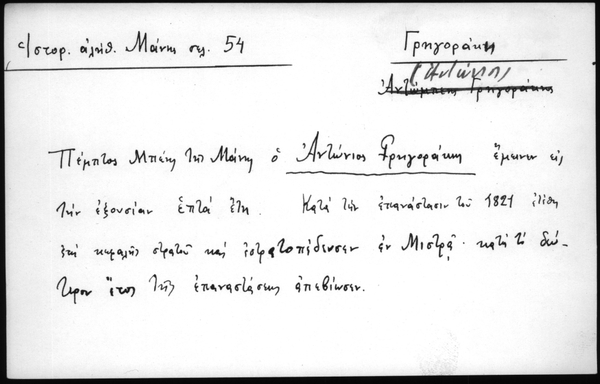 Ἱστορ. ἀλήθ. Μάνης σελ. 54
Γρηγοράκης
(Ἀντώνιος)
Ἀντώμπεης Γρηγοράκης
Πέμπτος Μπέης τῆς Μάνης ὁ Ἀντώνιος Γρηγοράκης ἔμεινεν εἰς
τὴν ἐξουσίαν ἑπτά ἔτη. Κατά τὴν ἐπανάστασιν τοῦ 1821 ἐτέθη
ἐπί κεφαλῆς στρατοῦ καί ἐστρατοπέδευσεν ἐν Μιστρᾷ· κατά τό δεύ-
τερον ἔτος τῆς ἐπαναστάσεως ἀπεβίωσεν.